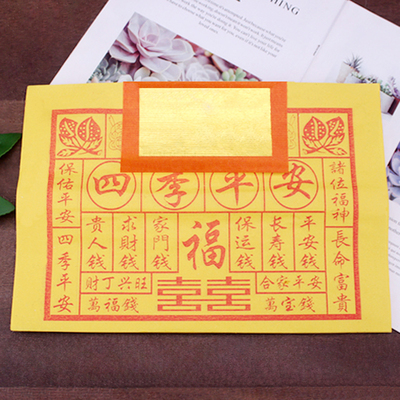 四季平安
保佑平安
四季平安
貴人錢
求財錢
家門錢
福
保运錢
長寿錢
平安錢
諸位福神
長命富貴
財丁兴旺
合家平安
萬福錢
囍
萬宝錢